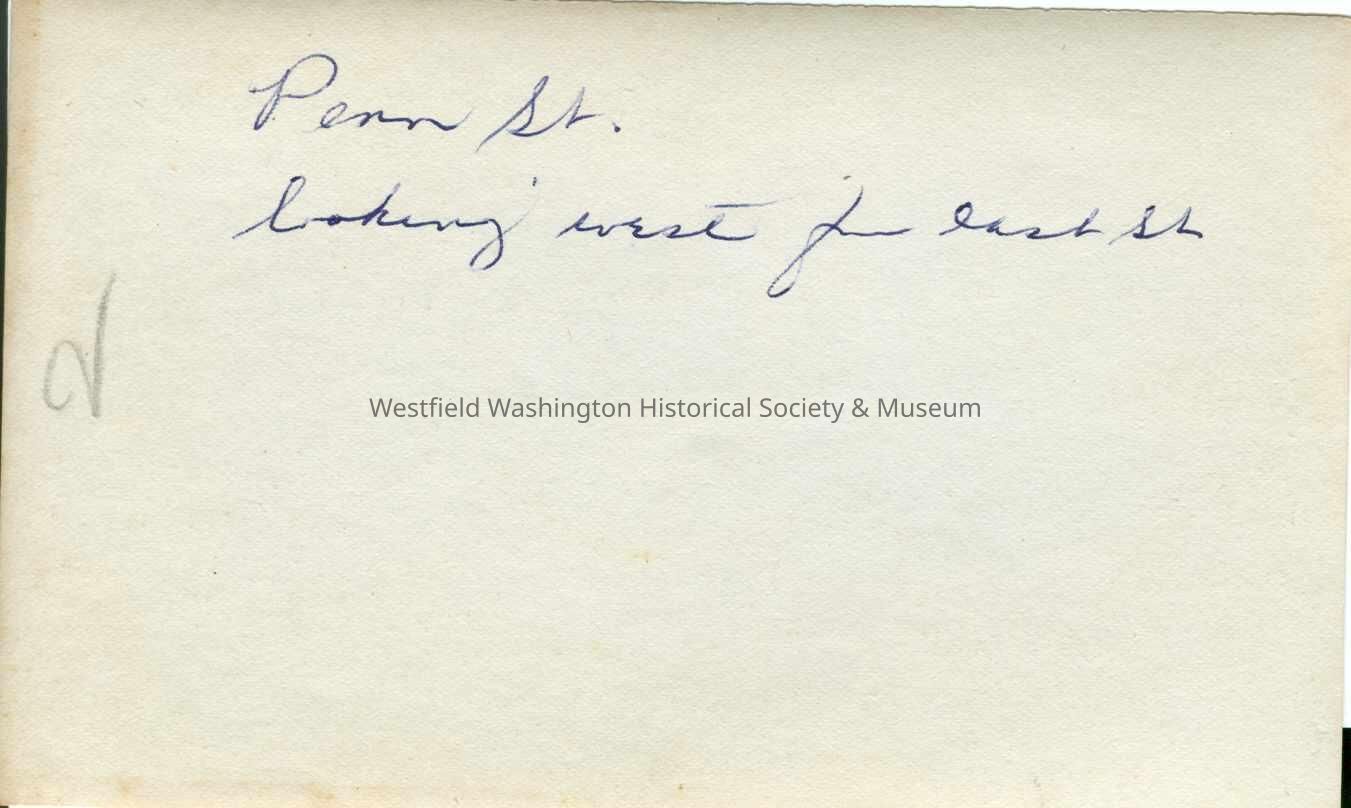 Penn St.
looking west fm East St
Westfield Washington Historical Society & Museum